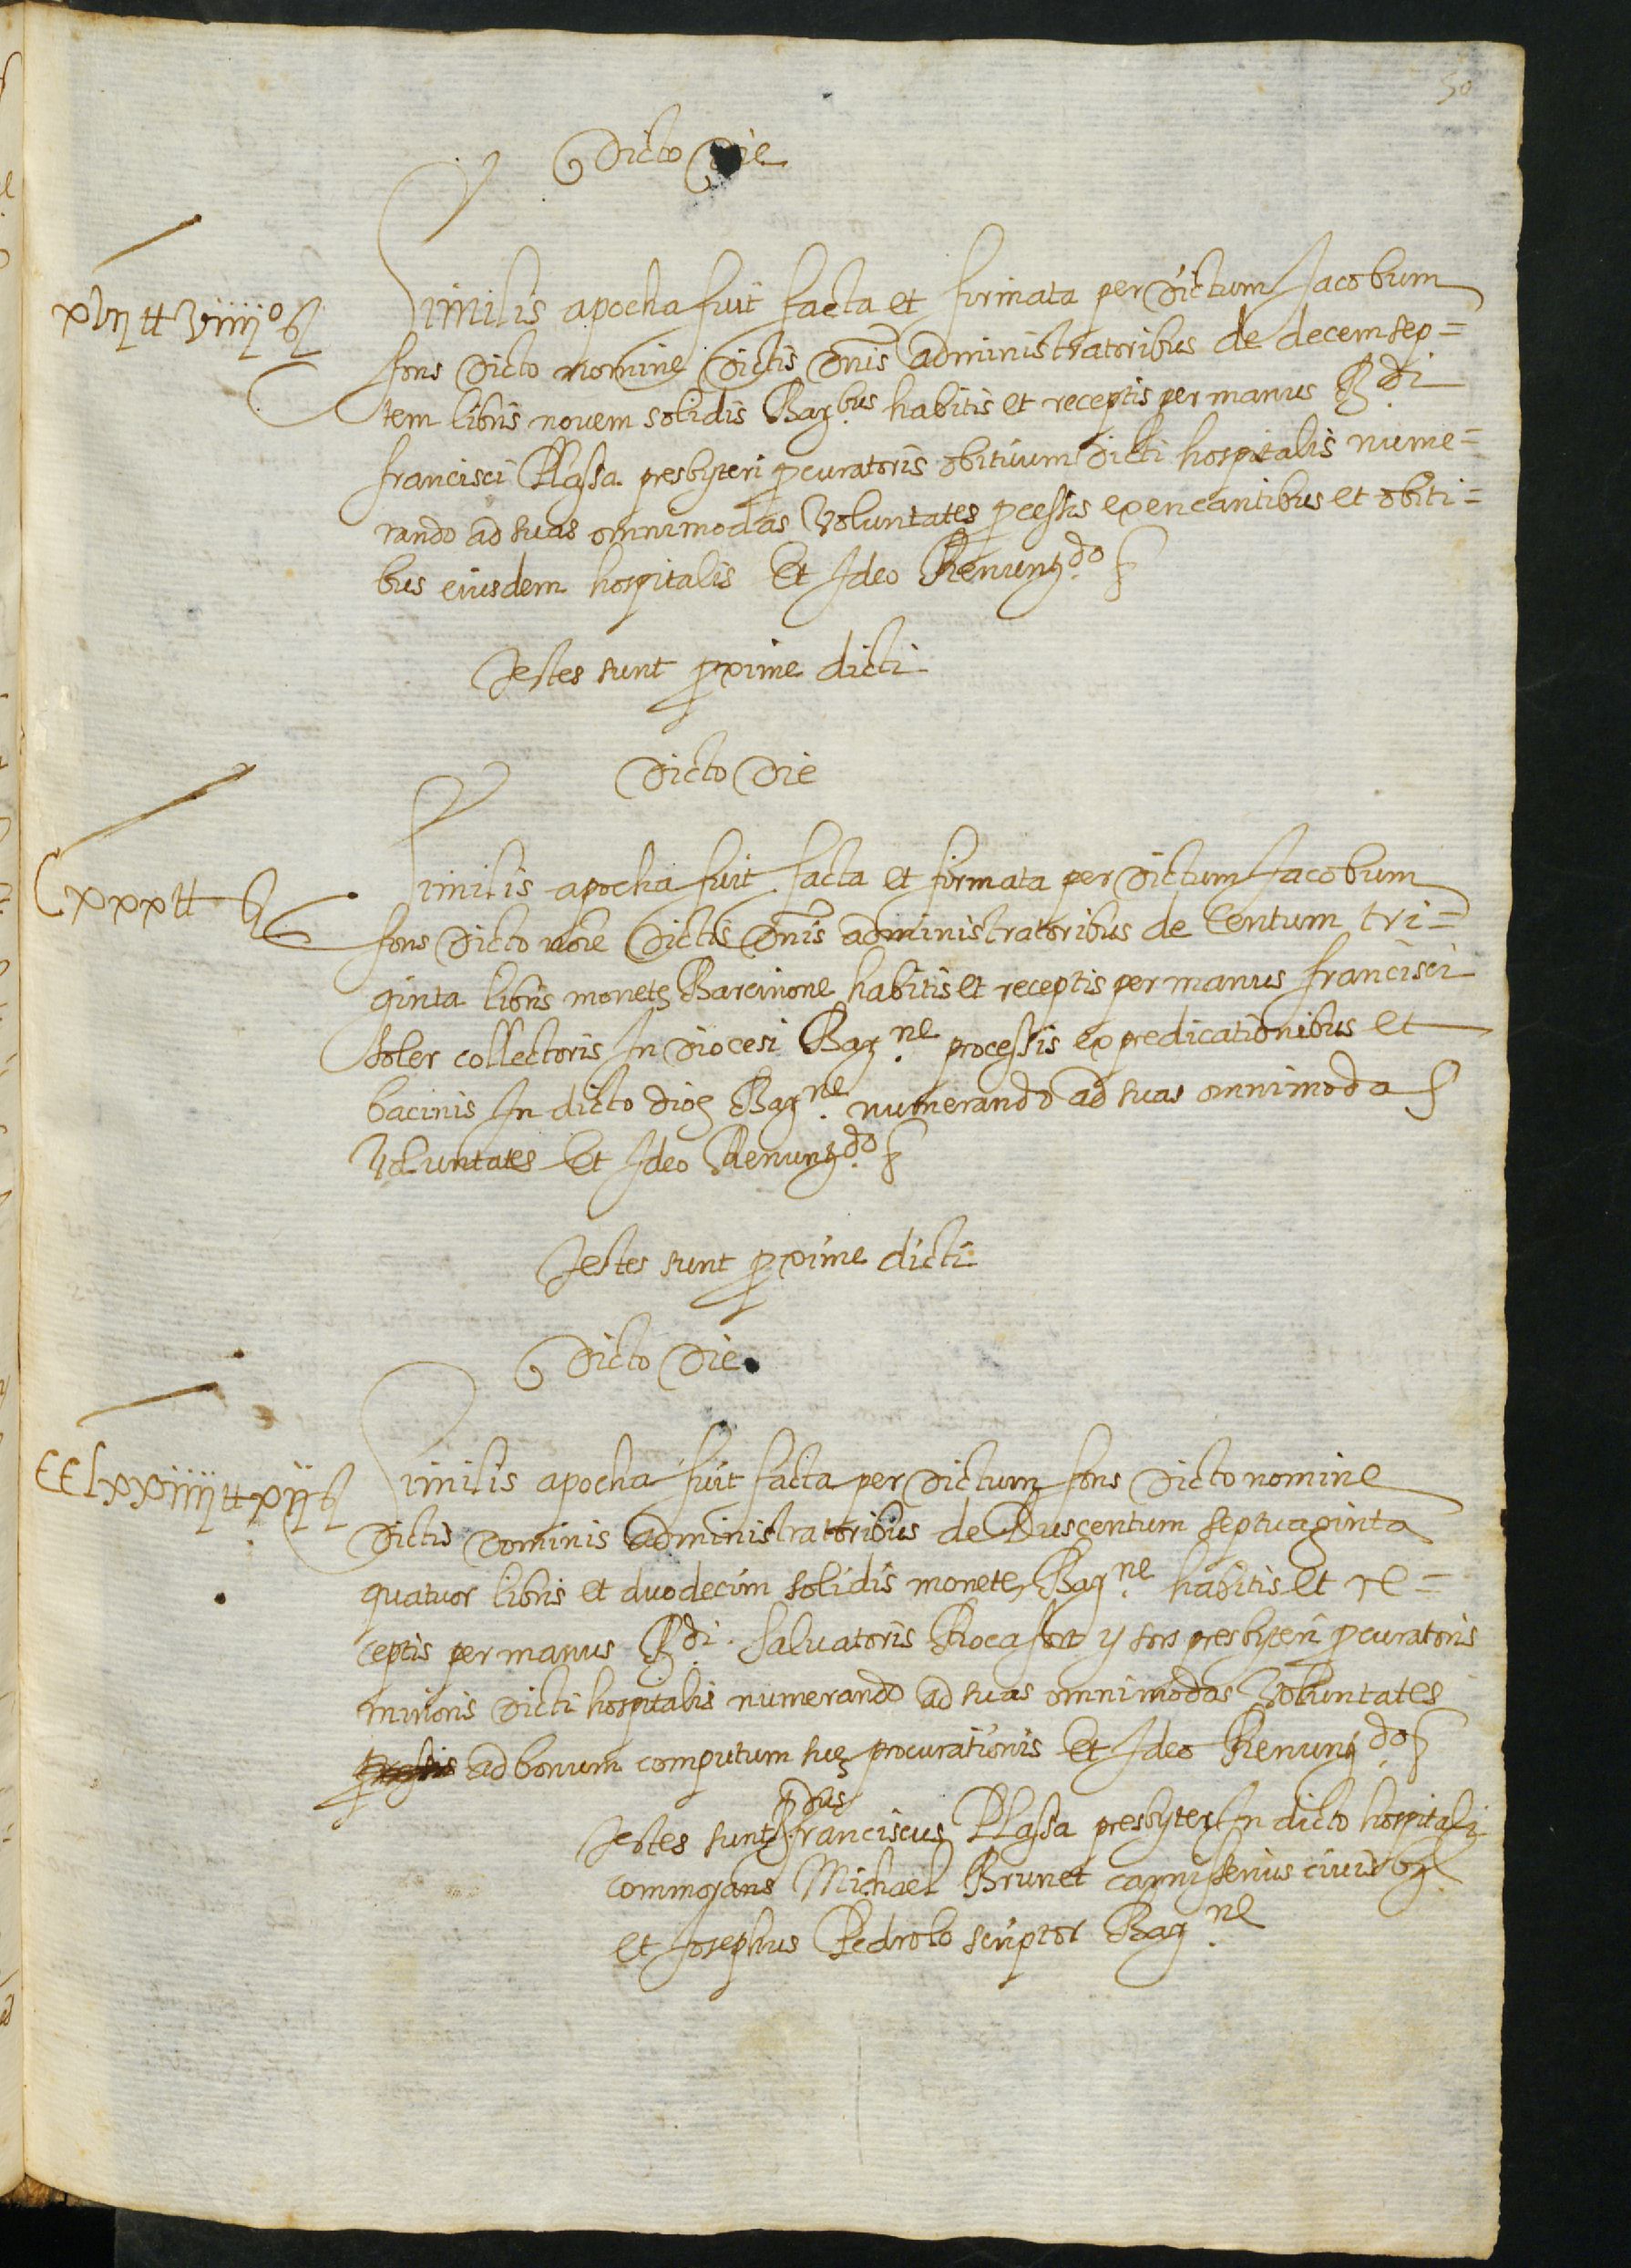 50
Dicto Die
xvij ℔ viiij º ß
Similis apocha fuit facta et firmata per dictum Jacobum
fons dicto nomine dictis dnis administratoribus de decem sep=
tem libris novem solidis Barᵇᵘˢ habitis et receptis per manus Rᵈⁱ
francisci Plassa presbyteri pcuratoris obituum dicti hospitalis nume=
rando ad suas omnimodas voluntates pcessis ex encantibus et obiti=
bus eiusdem hospitalis Et Ideo Renunᵈᵒ
Testes sunt pxime dicti
Dicto Die
Cxxx ℔ ß
Similis apocha fuit facta et firmata per dictum Jacobum
fons dicto noie dictis dnis administratoribus de Centum tri=
ginta libris monetę Barcinone habitis et receptis per manus francisci
soler collectoris In diocesi Barⁿᵉ processis ex predicationibus et
bacinis In dicto dioç Barⁿᵉ numerando ad suas omnimodas
voluntates Et Ideo Renunᵈᵒ
Testes sunt pxime dicti
Dicto Die
CClxxiiij ℔ xij ß
Similis apocha fuit facta per dictum fons dicto nomine
dictis dominis administratoribus de Duscentum septuaginta
quatuor libris et duodecim solidis monetę Barⁿᵉ habitis et re=
ceptis per manus Rᵈⁱ Salvatoris Rocafort y sors presbyteri pcuratoris
minoris dicti hospitalis numerando ad suas omnimodas voluntates
pcessis ad bonum computum suę procurationis Et Ideo Renunᵈᵒ
Testes sunt Rᵈᵘˢ franciscus Plassa presbyter In dicto hospitali
commorans Michael Brunet carnisserius civis
et Josephus Pedrolo scriptor Barⁿᵉ